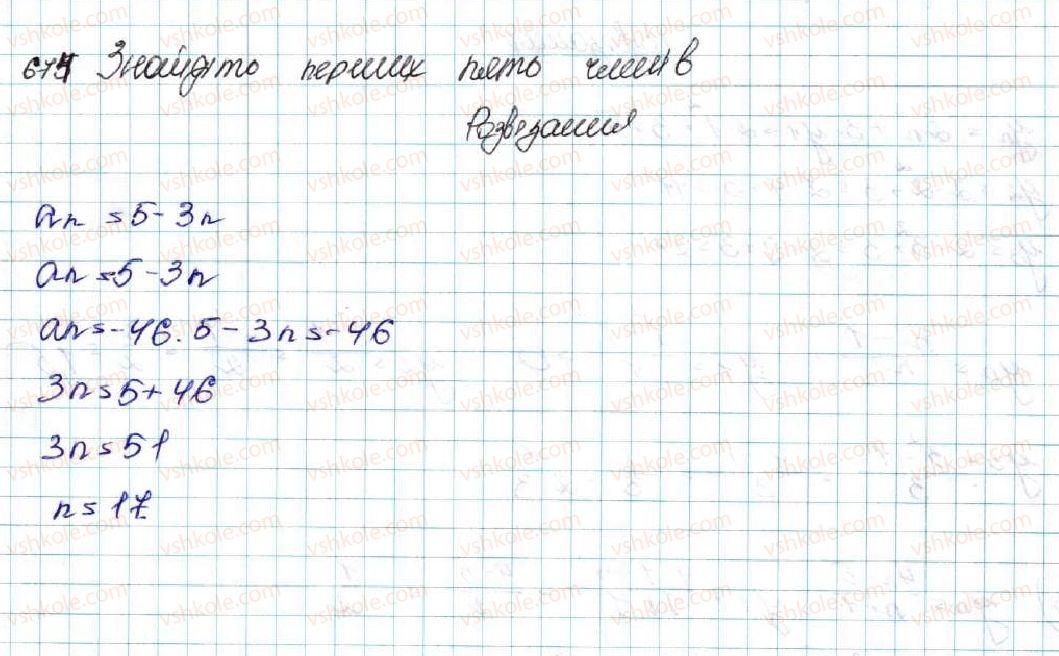 674 Знайдіть перших пять членів
Розвязання
an = 5 - 3n
an = 5 - 3n
an = -46. 5 - 3n = -46
3n = 5 + 46
3n = 51
n = 17